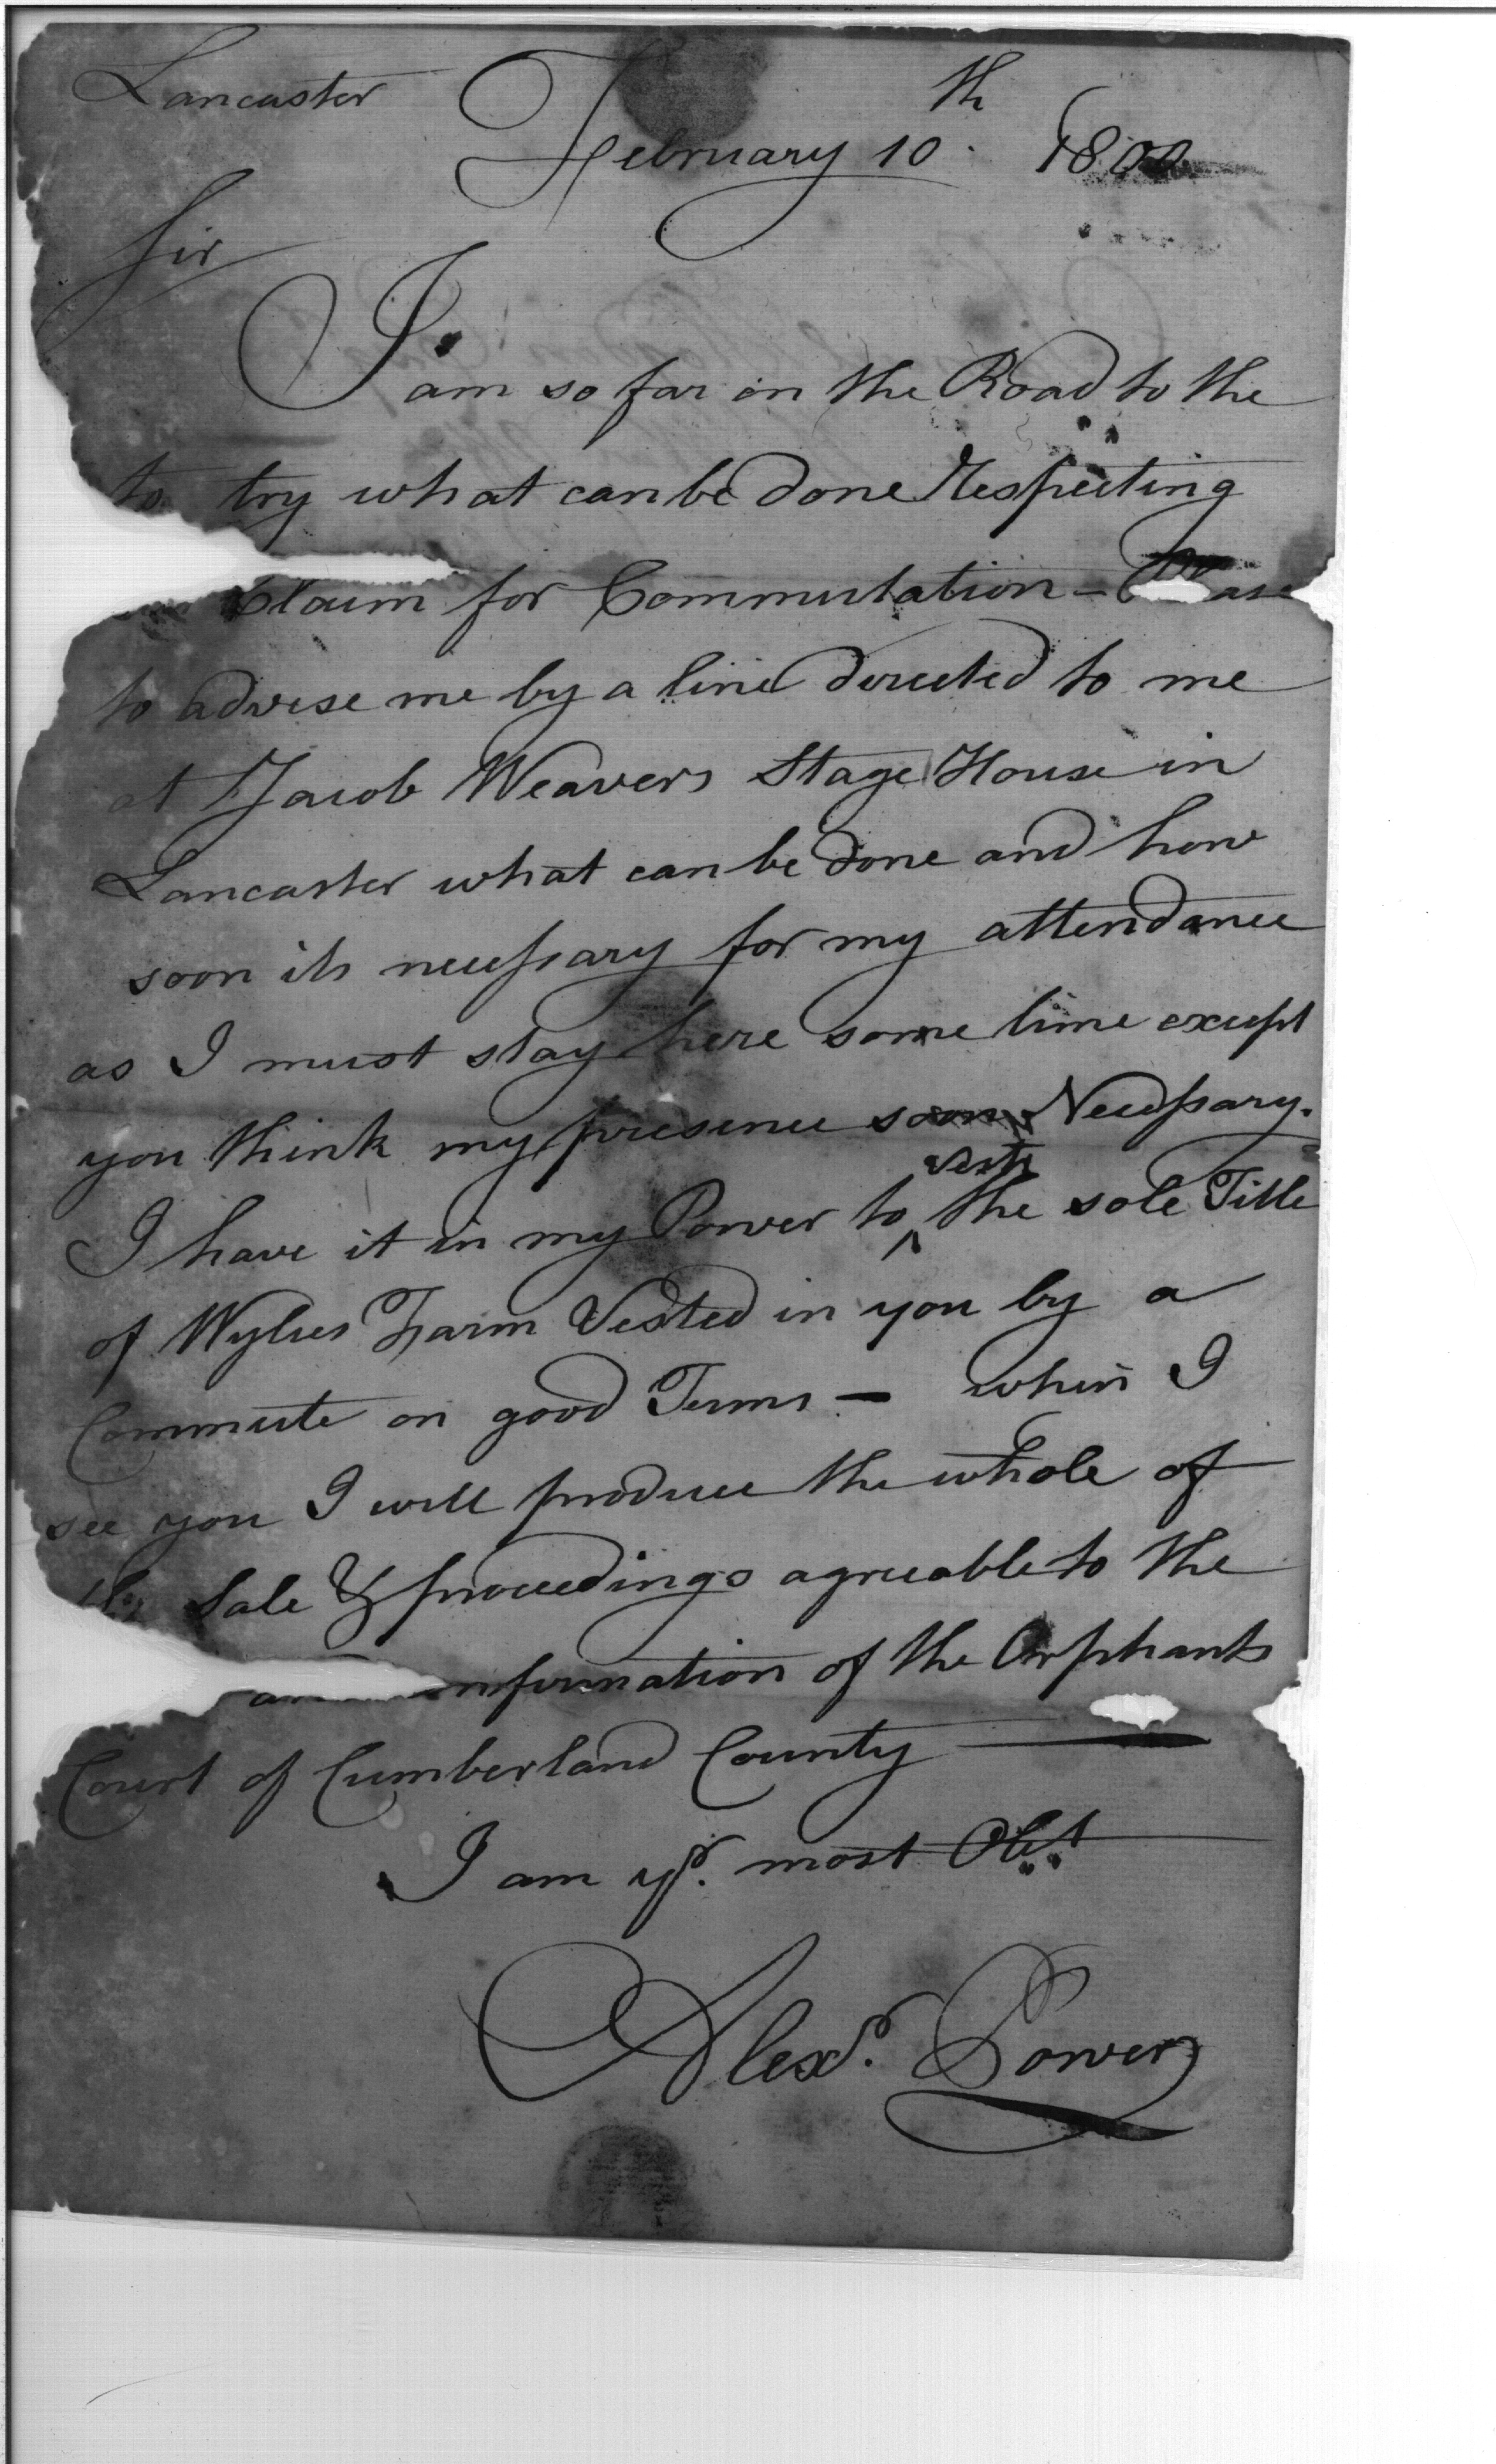 Lancaster February 10th 1800
Sir
I am so far on the Road to the
to try what can be done Respecting
Claim for Commutation - Please
to advise me by a line directed to me
at Jacob Weavers Stage House in
Lancaster what can be done and how
soon its necessary for my attendance
as I must stay here some time except
you think my presence soon Necessary.
I have it in my Power to the sole Title
of Wylies Farm Vested in you by a
Commute on good Terms — when I
see you I will produce the whole of
the Sale & proceedings agreable to the
and confirmation of the Orphants
Court of Cumberland County
I am yr. most Obt
Alexr. Power